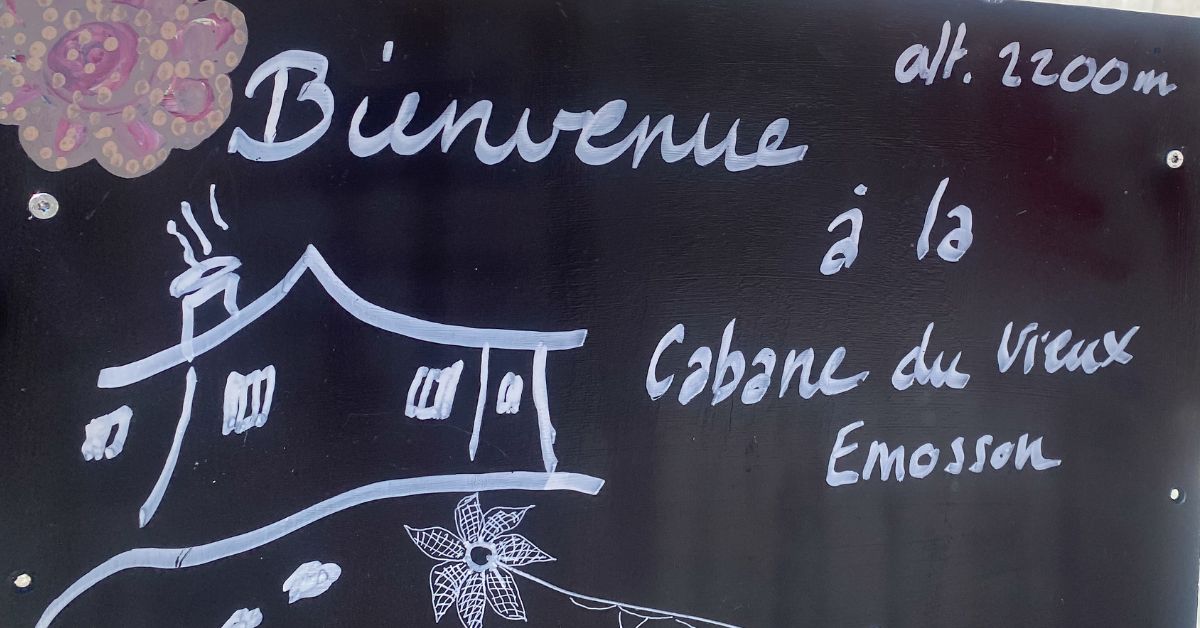 alt. 2200m
Bienvenue
à la
Cabane du Vieux
Emosson